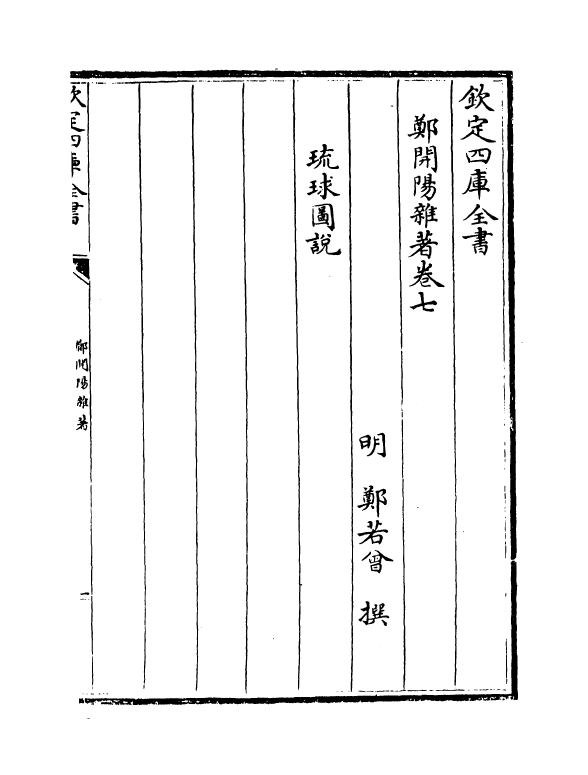 欽定四庫全書
鄭開陽雜著卷七
明 鄭若曾 撰
琉球圖說
欽定四庫全書
鄭開陽雜著
一